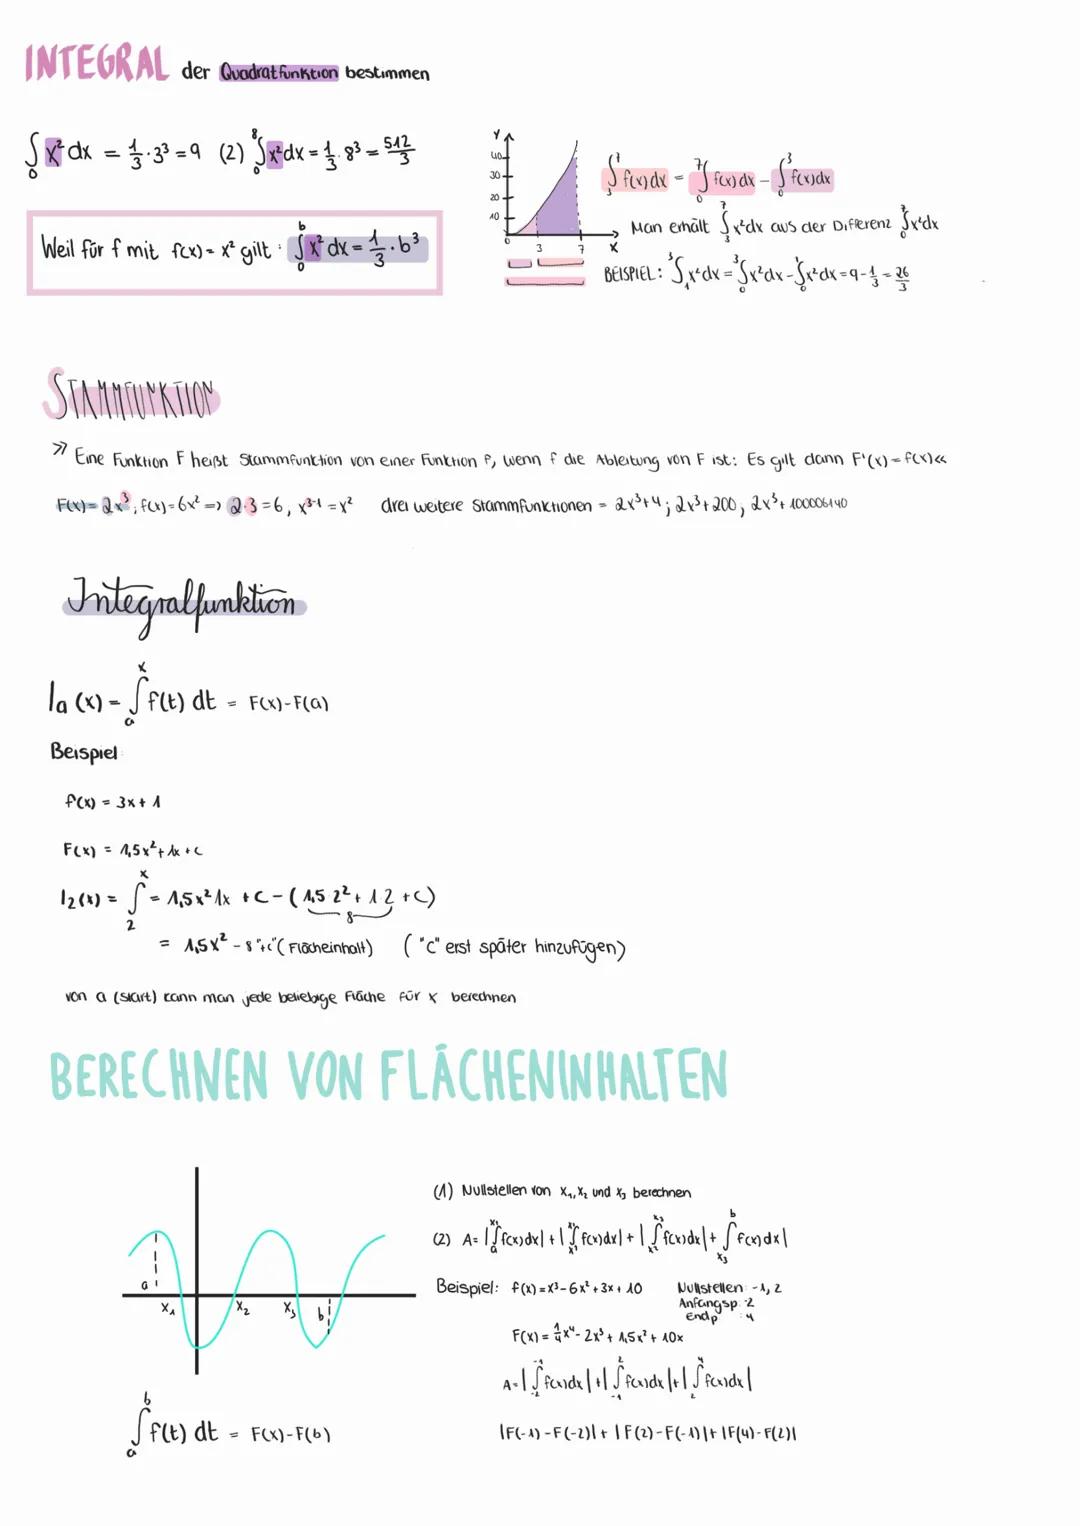 INTEGRAL der Quadratfunktion bestimmen
∫₀ x² dx = 1/3 · 3³ = 9 (2) ∫₀⁸ x² dx = 1/3 · 8³ = 512/3
Weil für f mit f(x) = x² gilt : ∫₀ᵇ x² dx = 1/3 · b³
y
40
30
20
10
0 3 7 x
∫₃⁷ f(x) dx = ∫₀⁷ f(x) dx - ∫₀³ f(x) dx
Man erhält ∫₃⁷ x² dx aus der Differenz ∫₀⁷ x² dx
BEISPIEL: ∫₁³ x² dx = ∫₀³ x² dx - ∫₀¹ x² dx = 9 - 1/3 = 26/3
STAMMFUNKTION
» Eine Funktion F heißt Stammfunktion von einer Funktion f, wenn f die Ableitung von F ist: Es gilt dann F'(x) = f(x) «
F(x) = 2x³; f(x) = 6x² => 2·3 = 6, x³⁻¹ = x² drei weitere Stammfunktionen = 2x³+4; 2x³+200; 2x³+100006140
Integralfunktion
Ia (x) = ∫ₐˣ f(t) dt = F(x)-F(a)
Beispiel:
f(x) = 3x + 1
F(x) = 1,5x² + 1x + c
I2(x) = ∫₂ˣ = 1,5x² 1x + C - (1,5 2² + 1 2 + C)
8
= 1,5x² - 8 "+c" (Flächeinhalt) ("C" erst später hinzufügen)
von a (start) kann man jede beliebige Fläche für x berechnen
BERECHNEN VON FLÄCHENINHALTEN
a x₁ x₂ x₃ b
∫ₐᵇ f(t) dt = F(x)-F(b)
(1) Nullstellen von x₁, x₂ und x₃ berechnen
(2) A = |∫ₐˣ¹ f(x) dx| + |∫ₓ₁ˣ² f(x) dx| + |∫ₓ₂ˣ³ f(x) dx| + ∫ₓ₃ᵇ f(x) dx|
Beispiel: f(x) = x³ - 6x² + 3x + 10 Nullstellen: -1, 2
Anfangsp: -2
Endp : 4
F(x) = 1/4 x⁴ - 2x³ + 1,5x² + 10x
A = |∫₋₂⁻¹ f(x) dx| + |∫₋₁² f(x) dx| + |∫₂⁴ f(x) dx|
|F(-1) - F(-2)| + |F(2) - F(-1)| + |F(4) - F(2)|